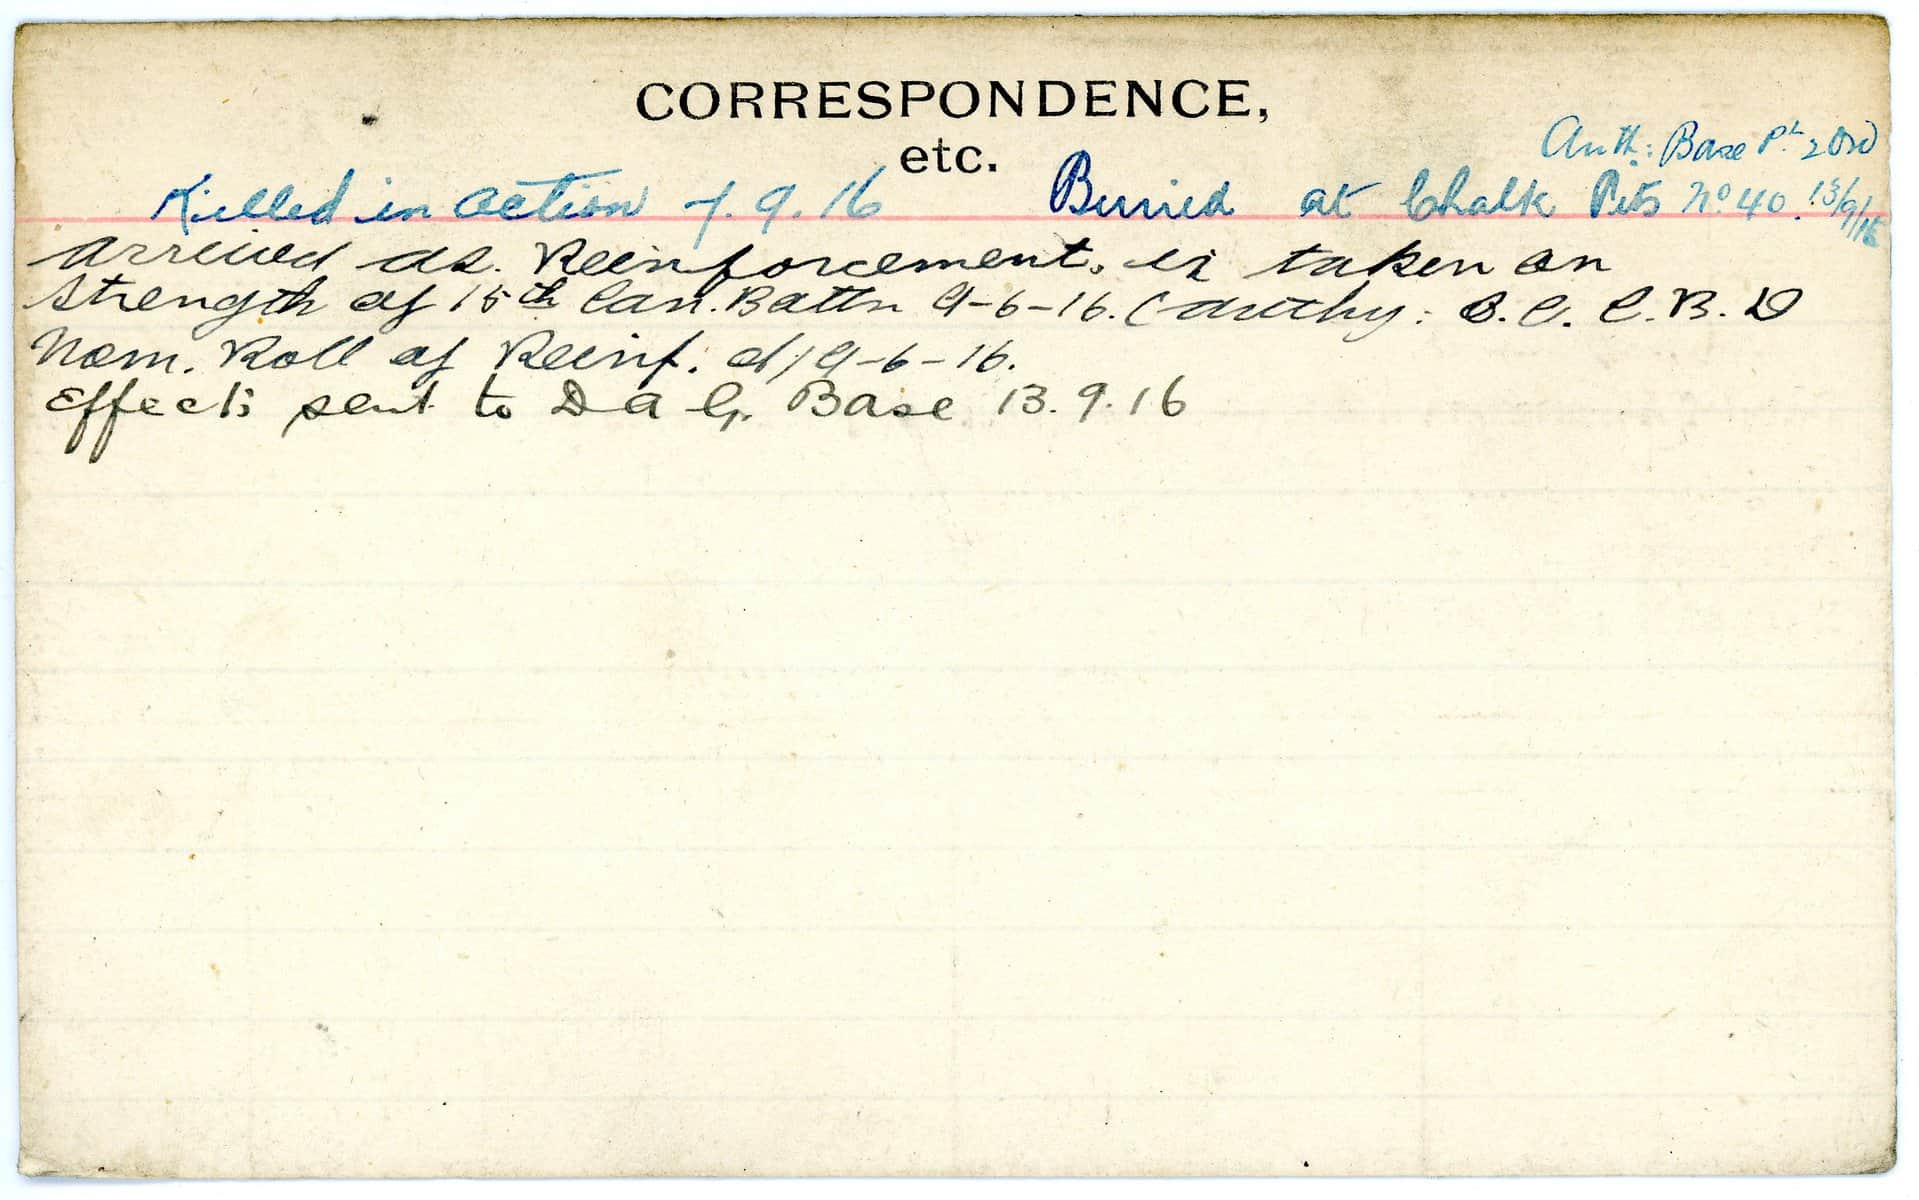 CORRESPONDENCE,
etc.
Auth: Base Pt 2 Ord
Killed in action 7.9.16 Buried at Chalk Pits No 40. 13/9/16
Arrived as Reinforcement, is taken on
Strength of 15th Can. Battn 9-6-16. (Authy: O.C. C.B.D
Nom. Roll of Reinf. d/9-6-16.
Effects sent to DAG. Base 13.9.16